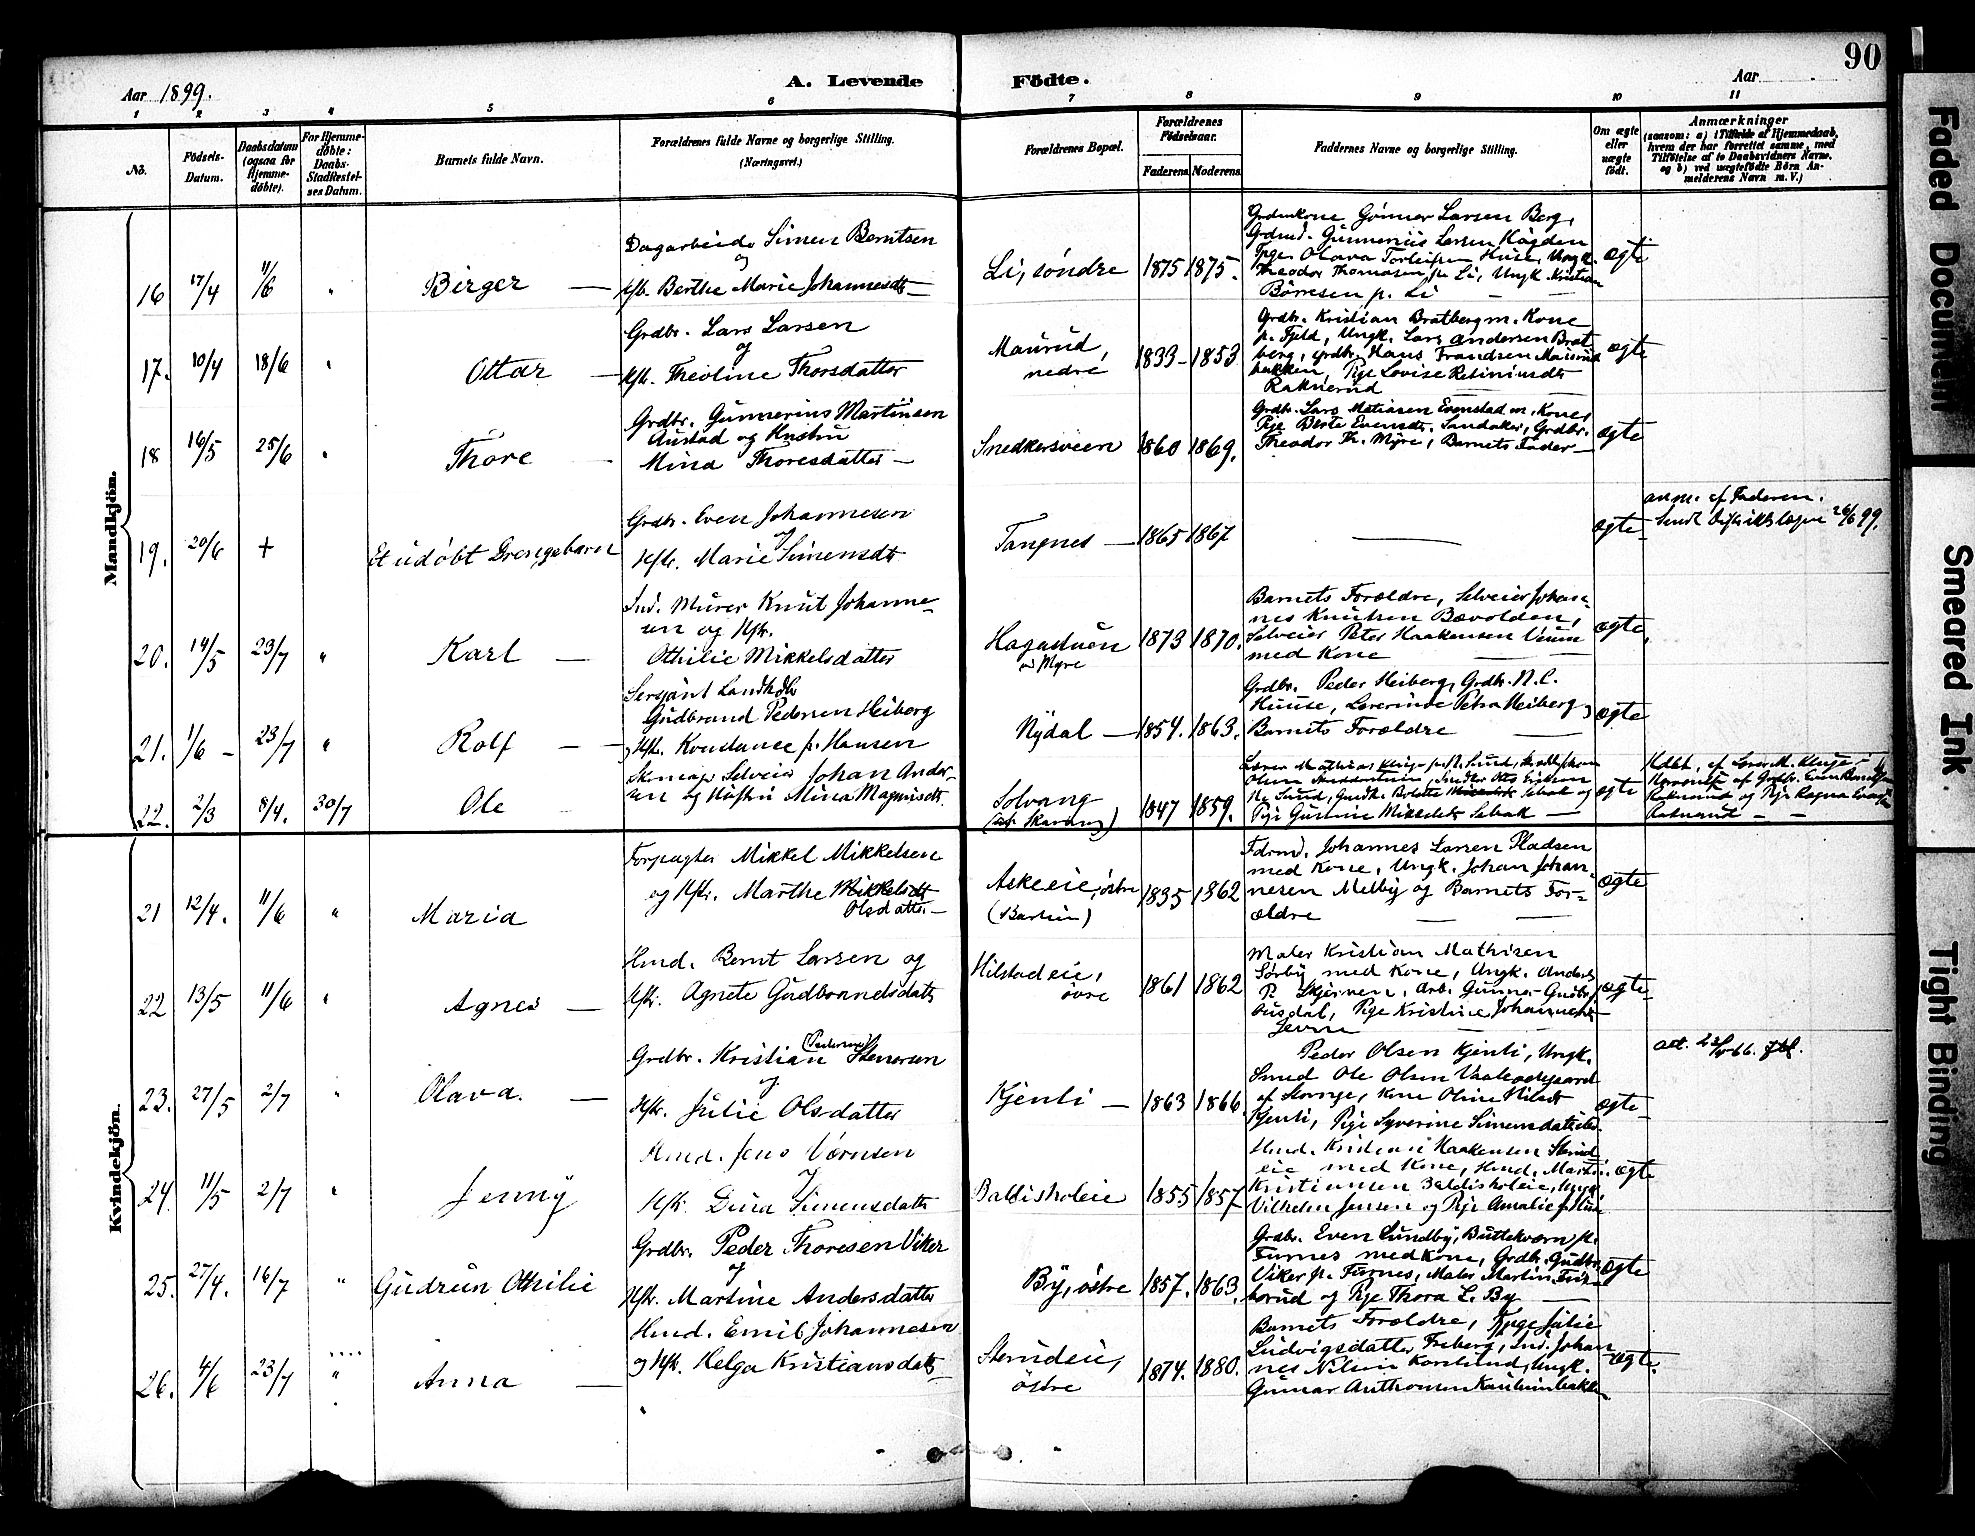 90
Aar 1899.
A. Levende Födte.
Aar
1 2 3 4 5 6 7 8 9 10 11
No.
Födsels-Datum.
Daabsdatum (ogsaa for Hjemmedöbte).
For Hjemmedöbte: Daabs-Stadfæstelses Datum.
Barnets fulde Navn.
Forældrenes fulde Navne og borgerlige Stilling. (Næringsvei.)
Forældrenes Bopæl.
Forældrenes Födselsaar.
Faderens Moderens
Faddernes Navne og borgerlige Stilling.
Om ægte eller uægte födt.
Anmærkninger
(saasom: a) i Tilfælde af Hjemmedaab, hvem der har forrettet samme, med Tilföielse af to Daabsvidners Navne, og b) ved uægtefödte Börn Anmelderens Navn m. V.)
Mandkjön.
16 17/4 11/6 " Birger —
Dagarbeide Simen Berntsen
og
Hfb. Berthe Marie Johannesdt —
Li, söndre 1875 1875.
Grdmkone Gunner Larsen Berg,
Grdmd. Gunnerius Larsen Haugden
Pige Olava Torleifsen Huse, Ungk.
Theodor Thomasen p. Li, Ungk. Kristian
Börresen p. Li — —
ægte
17. 10/4 18/6 " Ottar —
Grdbr. Lars Larsen
og
Hfr. Theoline Thorsdatter
Maurud, nedre 1833 - 1853
Grdbr. Kristian Bratberg m. Kone
p. Fjeld, Ungk. Lars Andersen Brat
berg, grdbr. Hans Frandsen Maurud
bakken, Pige Lovise
Raknerud
ægte
18 16/5 25/6 " Thore —
Grdbr. Gunnerius Martinsen
Austad og Hustru
Mina Thoresdatter —
Snedkersveen 1860 1869.
Grdbr. Lars Matiasen Evenstad m. Kone,
Pige Berte Evensdt. Sandaker, Grdbr.
Theodor Th. Myre, Barnets Fader —
ægte
19. 20/6 + Et udöbt Drengebarn
Grdbr. Even Johannesen
og
Hfr. Marie Simensdt
Tangnes — 1865 1867
—
ægte
anm. af Faderen.
Sendt Distriktslægen 26/6 99.
20. 14/5 23/7 " Karl —
Ind. Murer Knut Johanne-
sen og Hfr.
Othilie Mikkelsdatter
Hagastuen
v/ Myre
1873 1870.
Barnets Forældre, Selveier Johan-
nes Knutsen Bævolden,
Selveier Peter Haakensen Veum
med Kone
ægte
21. 1/6 - 23/7 " Rolf — —
Sersjant Landhdlr
Gudbrand Pedersen Heiberg
og Hfr. Konstance f. Hansen
Nydal — 1854. 1863.
Grdbr. Peder Heiberg, Grdbr. N. C.
Huuse, Lærerinde Petra Heiberg,
Barnets Forældre —
ægte
22. 2/3 8/4. 30/7 Ole —
Skomager Selveier Johan Ander-
sen og Hustru Mina Magnusdt.
Solvang
(Skarang)
1847 1859.
Pige Gunine Mikkelsdt Sebak —
ægte
Kvindekjön.
21 12/4. 11/6 " Maria
Forpagter Mikkel Mikkelsen
og Hfr. Marthe Mikkelsdt
Olsdatter —
Askeeie, östre
1835 1862
Fdrmd. Johannes Larsen Pladsen
med Kone, Ungk. Johan Johan-
nesen Melby og Barnets For-
ældre — —
ægte
22 13/5 11/6 " Agnes —
Hmd. Bernt Larsen og
Hfr. Agnete Gudbrandsdatt
Hilstadeie,
övre
1861 1862
Maler Kristian Mathisen
Sörby med Kone, Ungk. Anders
P. Skjerven, Arb. Gunner Gudbr.
Ausdal, Pige Kristine Johannesdt
Jevne — —
ægte
23. 27/5 2/7 " Olava. —
Grdbr. Kristian (Pedersen) Stenersen
og
Hfr. Julie Olsdatter
Kjenli — 1863 1866
Peder Olsen Kjenli, Ungk.
Smed Ole Olsen
Kjenli, Pige Syverine Simensdatter
ægte
24. 11/5 2/7 " Jenny
Hmd. Jens Vörnsen
og
Hfr. Dina Simensdatt
Baldisholeie 1855 1857
Hmd. Kristian Haakensen Sterud
eie med Kone, Hmd. Martin
Kristiansen Baldisholeie, Ungk.
Vilhelm Jensen og Pige Amalie
ægte
25. 27/4. 16/7 " Gudrun Othilie
Grdbr. Peder Thoresen Viker
og
Hfr. Martine Andersdatter
By, östre 1857. 1863.
Grdbr. Even Lundby, Buttekværn p.
Furnes med Kone, Grdbr. Gudbr.
Viker p. Furnes, Maler Martin
og Pige Thora L. By —
ægte
26. 4/6 23/7 " Anna —
Hmd. Emil Johannesen
og Hfr. Helga Kristiansdatt
Sterudeie,
östre
1874. 1880.
Barnets Forældre, Pige Julie
Ludvigsdatter Friberg, Ind. Johan
nes Nilsen Korslund, Ungk.
Gunnar Anthonsen
ægte
Faded Document
Smeared Ink.
Tight Binding